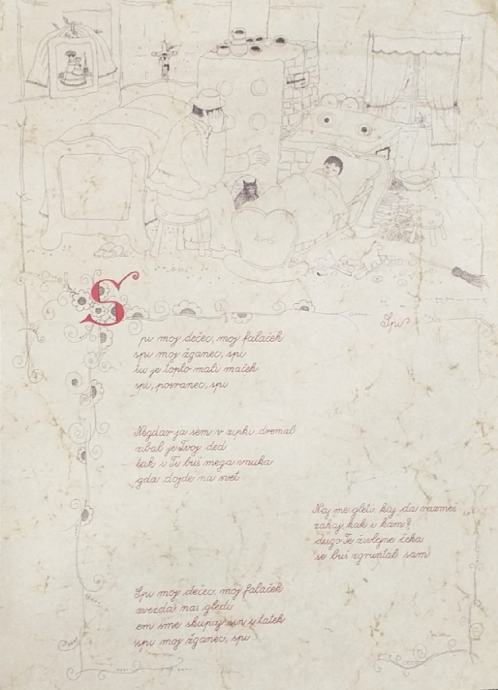 Spi
Spi moj dečec, moj falaček
spi moj žganec, spi
tu je toplo mali maček
spi, posranec, spi
Negdar ja sem v zipki dremal
zibal je Tvoj ded
tak i Ti buš mega vnuka
gda dojde na svet
Naj me gleti kaj da razmeš
zakaj, kak i kam?
dugo Te živlejne čeka
se buš zgruntal sam
Spi moj dečec, moj falaček
zvezda nas gledi
em sme skupaj sin i tatek
spi moj žganec, spi